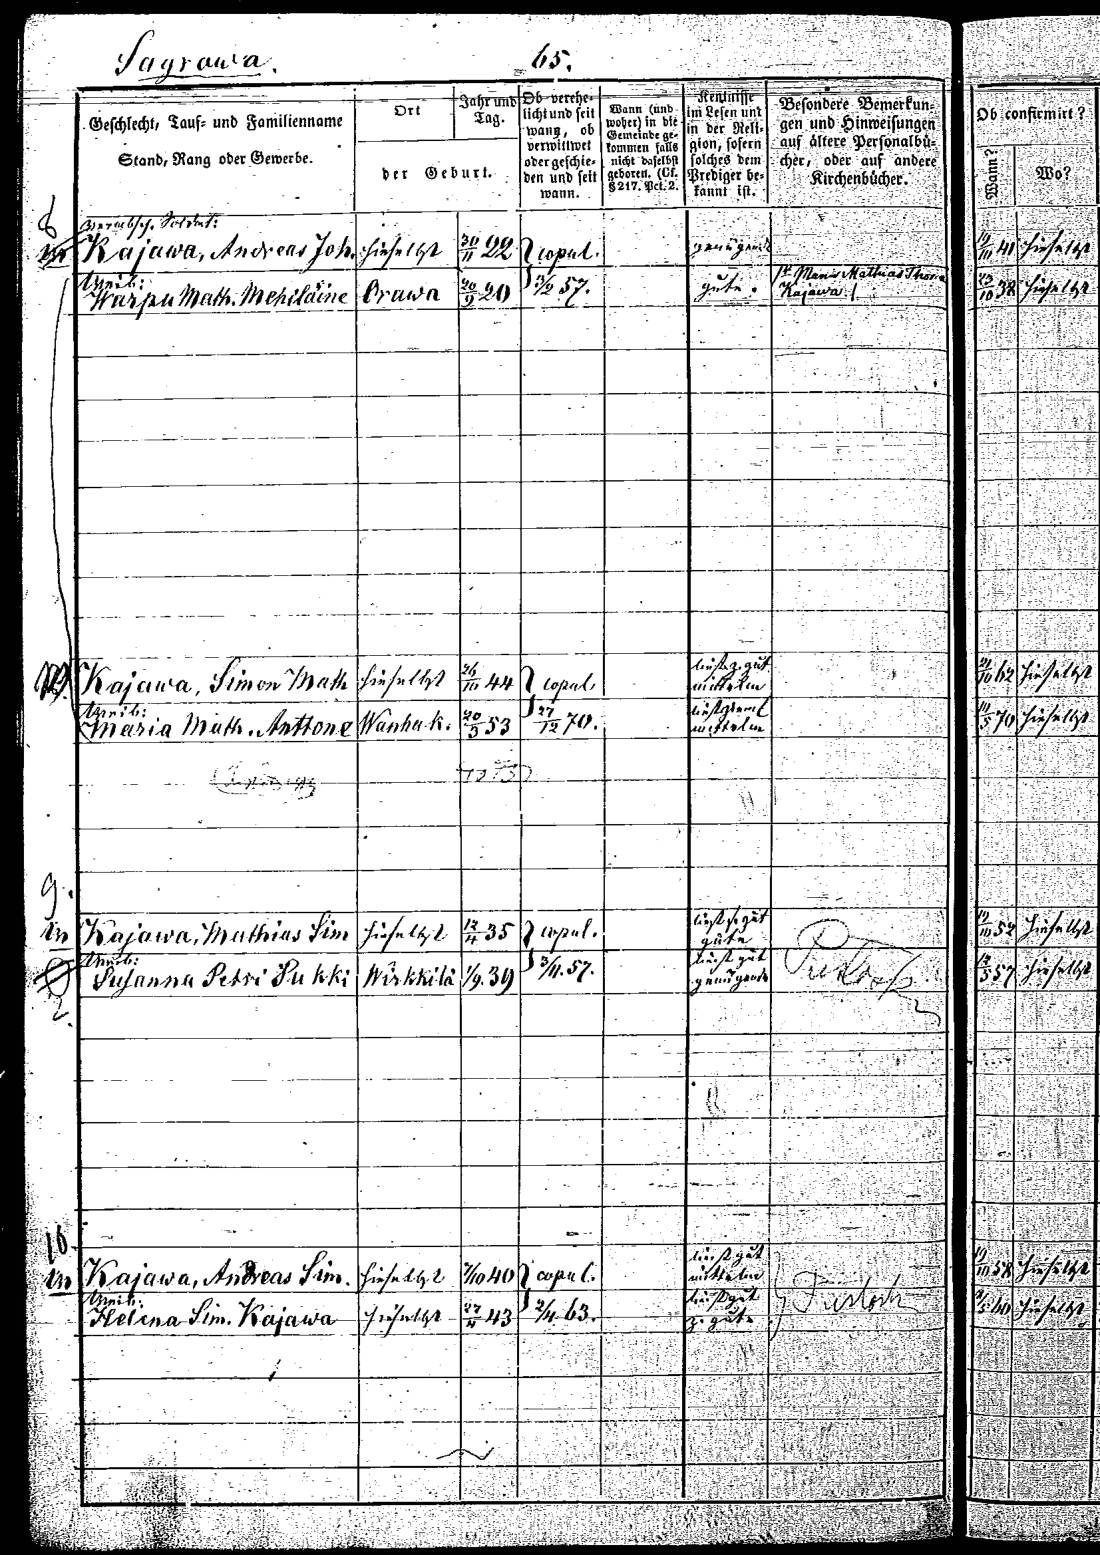 Sagrawa. 65.
Geschlecht, Tauf- und Familienname
Stand, Rang oder Gewerbe.
Ort
Jahr und
Tag.
der Geburt.
Ob verehe-
licht und seit
wann, ob
verwittwet
oder geschie-
den und seit
wann.
Wann (und
woher) in die
Gemeinde ge-
kommen falls
nicht daselbst
geboren. (Cf.
§ 217. Pct. 2.
Kentnisse
im Lesen und
in der Reli-
gion, sofern
solches dem
Prediger be-
kannt ist.
Besondere Bemerkun-
gen und Hinweisungen
auf ältere Personalbü-
cher, oder auf andere
Kirchenbücher.
Ob confirmirt?
Wann?
Wo?
8
verabsch. Soldat:
Kajawa, Andreas Joh. hieselbst 30/11 22 copul. genügend 19/10 41 hieselbst
Weib:
Warpu Math. Mehiläine Orawa 20/9 20 3/2 57. gute. 1r Mann Mathias Thom. Kajawa 23/10 38 hieselbst
Kajawa, Simon Math hieselbst 26/10 44 copul. liest z. gut mittelm 21/10 62 hieselbst
Weib:
Maria Math. Anttone Wanhak. 20/3 53 27/12 70. mittelm 10/5 70 hieselbst
9.
Kajawa, Mathias Sim hieselbst 12/4 35 copul. gute 19/10 52 hieselbst
Weib:
Susanna Petri Pukki Wirkkilä 1/9. 39 3/11. 57. liest gut genügend 12/5 57 hieselbst
2.
10
Kajawa, Andreas Sim. hieselbst 7/10 40 copul. liest gut mittelm 19/10 58 hieselbst
Weib:
Helena Sim. Kajawa hieselbst 27/4 43 2/4 63. liest gut z. gute 60 hieselbst